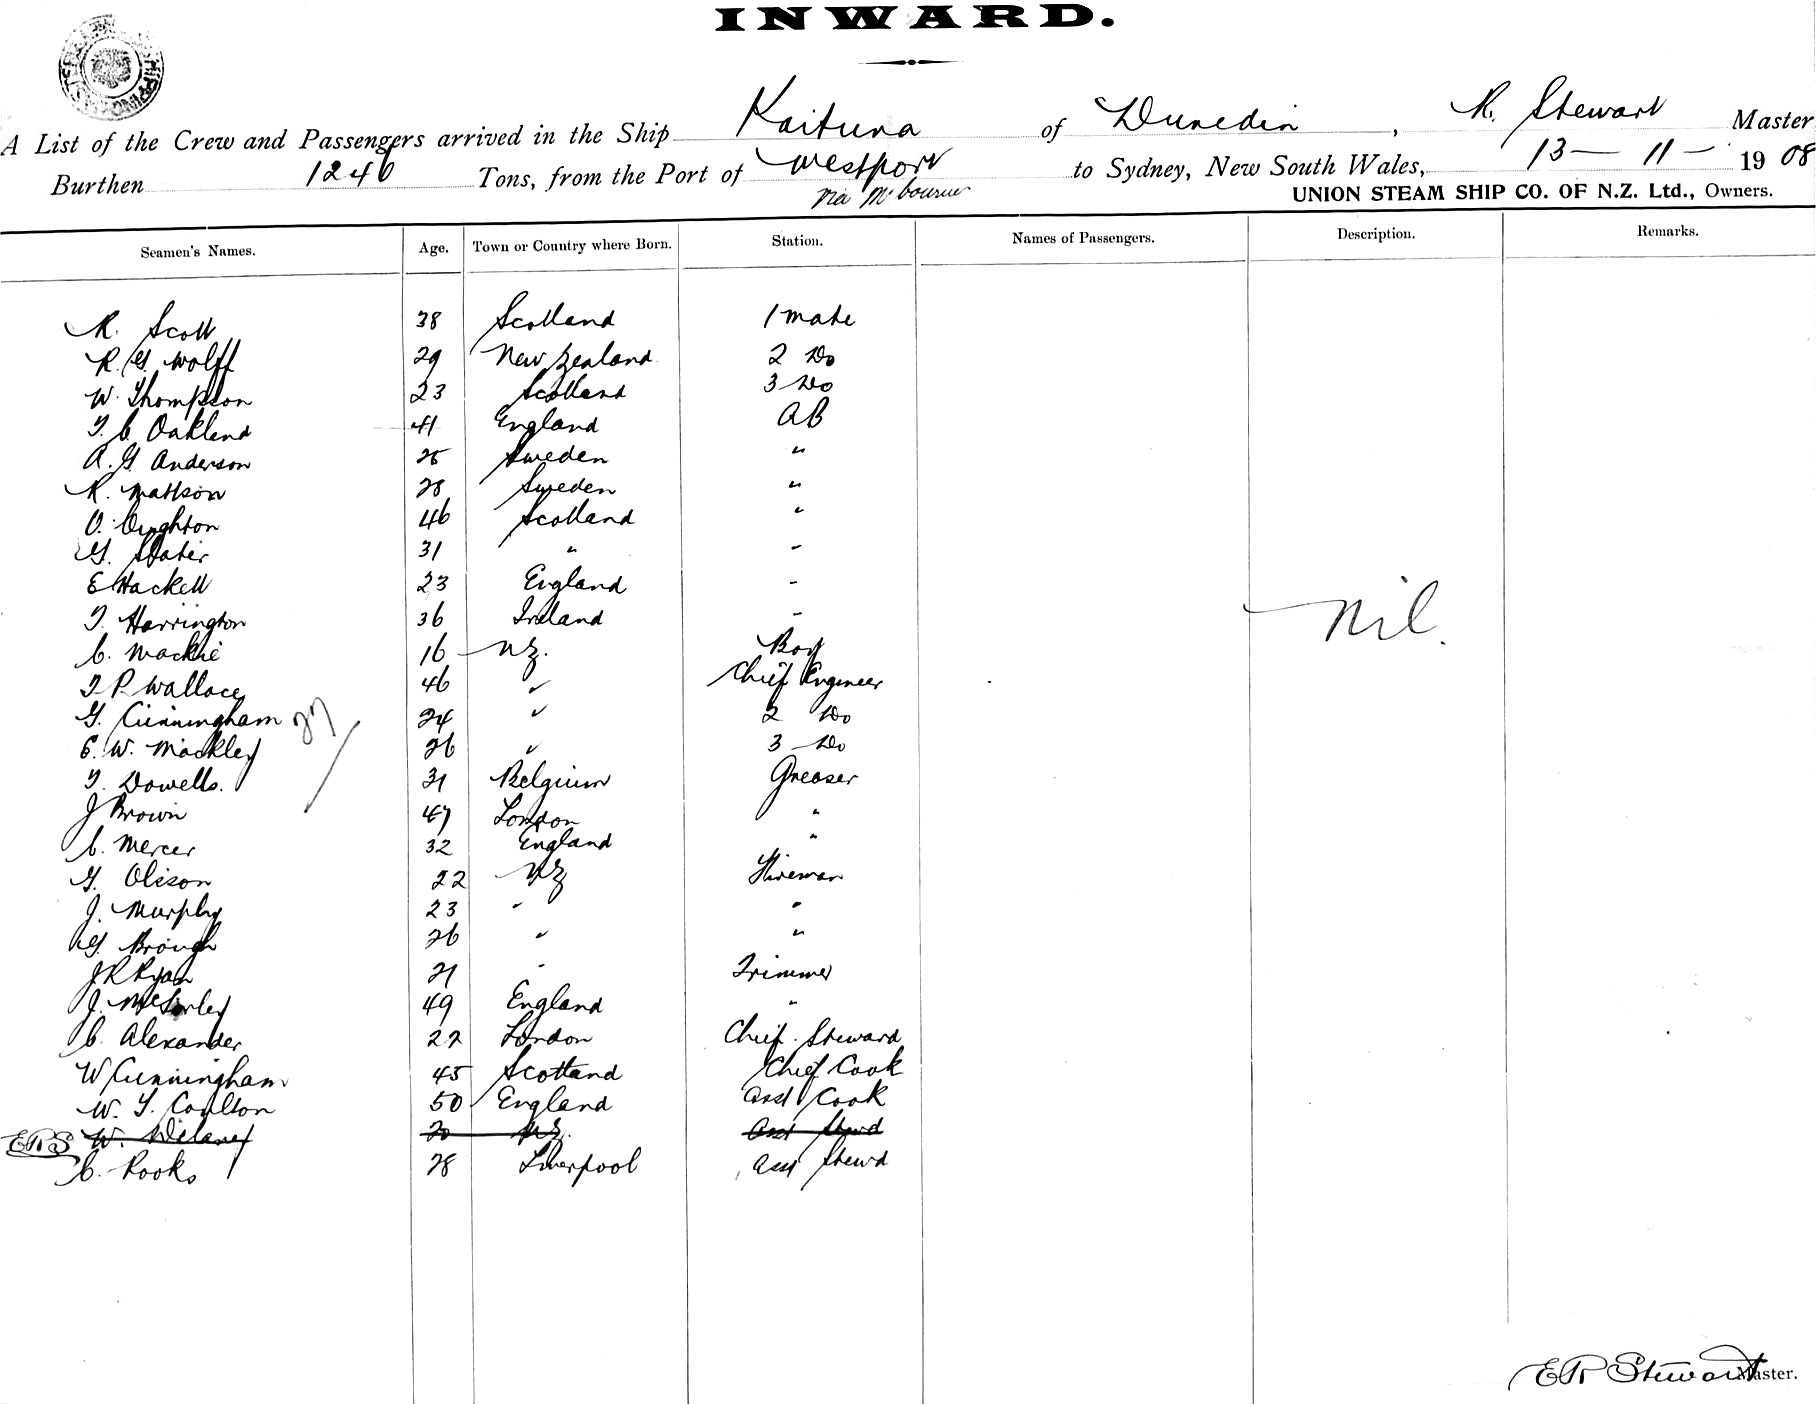 INWARD.
A List of the Crew and Passengers arrived in the Ship Kaituna of Dunedin, R. Stewart Master
Burthen 1246 Tons, from the Port of Westport to Sydney, New South Wales, 13 - 11 - 1908
via Mcbourne UNION STEAM SHIP CO. OF N.Z. Ltd., Owners.
Seamen's Names. Age. Town or Country where Born. Station. Names of Passengers. Description. Remarks.
R. Scott 38 Scotland 1 mate
R. G. Wolff 29 New Zealand 2 Do
W. Thompson 23 Scotland 3 Do
T. C. Oakland 41 England AB
A. G. Anderson 25 Sweden "
R. Mattson 28 Sweden "
O. 46 Scotland "
G. Slater 31 " "
E Hackett 23 England "
T. Harrington 36 Ireland "
Nil.
C. Mackie 16 NZ. Boy
T P Wallace 46 " Chief Engineer
G. Cunningham 24 " 2 Do
27
E. W. Mackley 26 " 3 Do
T. Dowells. 31 Belgium Greaser
J Brown 47 London "
C. Mercer 32 England "
G. Olsson 22 NZ Fireman
J. Murphy 23 " "
G. Brough 26 " "
J R Ryan 21 " Trimmer
J. McSorley 49 England "
C. Alexander 22 London Chief Steward
W Cunningham 45 Scotland Chief Cook
W. T. Coulton 50 England Asst Cook
ERS W. Delaney 20 NZ. Asst Stewd
C. Rooks 28 Liverpool Asst Stewd
ER Stewart Master.